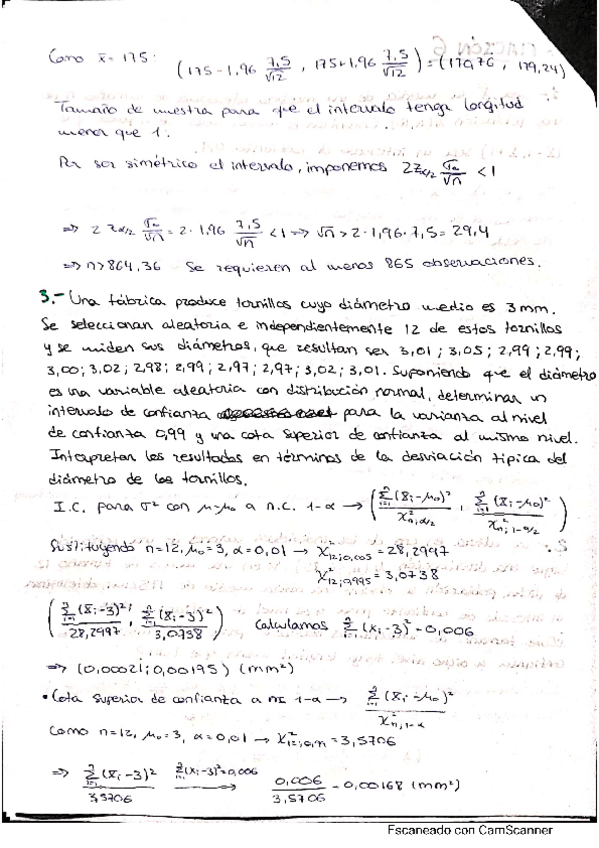 Como x̄ = 175: (175 - 1,96 7,5/√12 , 175 + 1,96 7,5/√12) = (170,76 , 179,24)
Tamaño de muestra para que el intervalo tenga longitud
menor que 1:
Por ser simétrico el intervalo, imponemos 2 z_α/2 σ/√n < 1
⇒ 2 z_α/2 σ/√n = 2 · 1,96 · 7,5/√n < 1 ⇒ √n > 2 · 1,96 · 7,5 = 29,4
⇒ n > 864,36 Se requieren al menos 865 observaciones.
3.- Una fábrica produce tornillos cuyo diámetro medio es 3 mm.
Se seleccionan aleatoria e independientemente 12 de estos tornillos
y se miden sus diámetros, que resultan ser 3,01 ; 3,05 ; 2,99 ; 2,99 ;
3,00 ; 3,02 ; 2,98 ; 2,99 ; 2,97 ; 2,97 ; 3,02 ; 3,01. Suponiendo que el diámetro
es una variable aleatoria con distribución normal, determinar un
intervalo de confianza para la varianza al nivel
de confianza 0,99 y una cota superior de confianza al mismo nivel.
Interpretar los resultados en términos de la desviación típica del
diámetro de los tornillos.
I.C. para σ² con μ=μ₀ a n.c. 1-α → (Σ(Xᵢ-μ₀)²/χ²_n;α/2 , Σ(Xᵢ-μ₀)²/χ²_n;1-α/2)
Sustituyendo n=12, μ₀=3, α=0,01 → χ²_12;0,005 = 28,2997
χ²_12;0,995 = 3,0738
(Σ(Xᵢ-3)²/28,2997 , Σ(Xᵢ-3)²/3,0738) Calculamos Σ(xᵢ-3)² = 0,006
⇒ (0,00021 ; 0,00195) (mm²)
• Cota superior de confianza a 1-α → Σ(Xᵢ-μ₀)²/χ²_n;1-α
Como n=12, μ₀=3, α=0,01 → = 3,5706
⇒ Σ(Xᵢ-3)²/3,5706 Σ(xᵢ-3)²=0,006 → 0,006/3,5706 = 0,00168 (mm²)
Escaneado con CamScanner